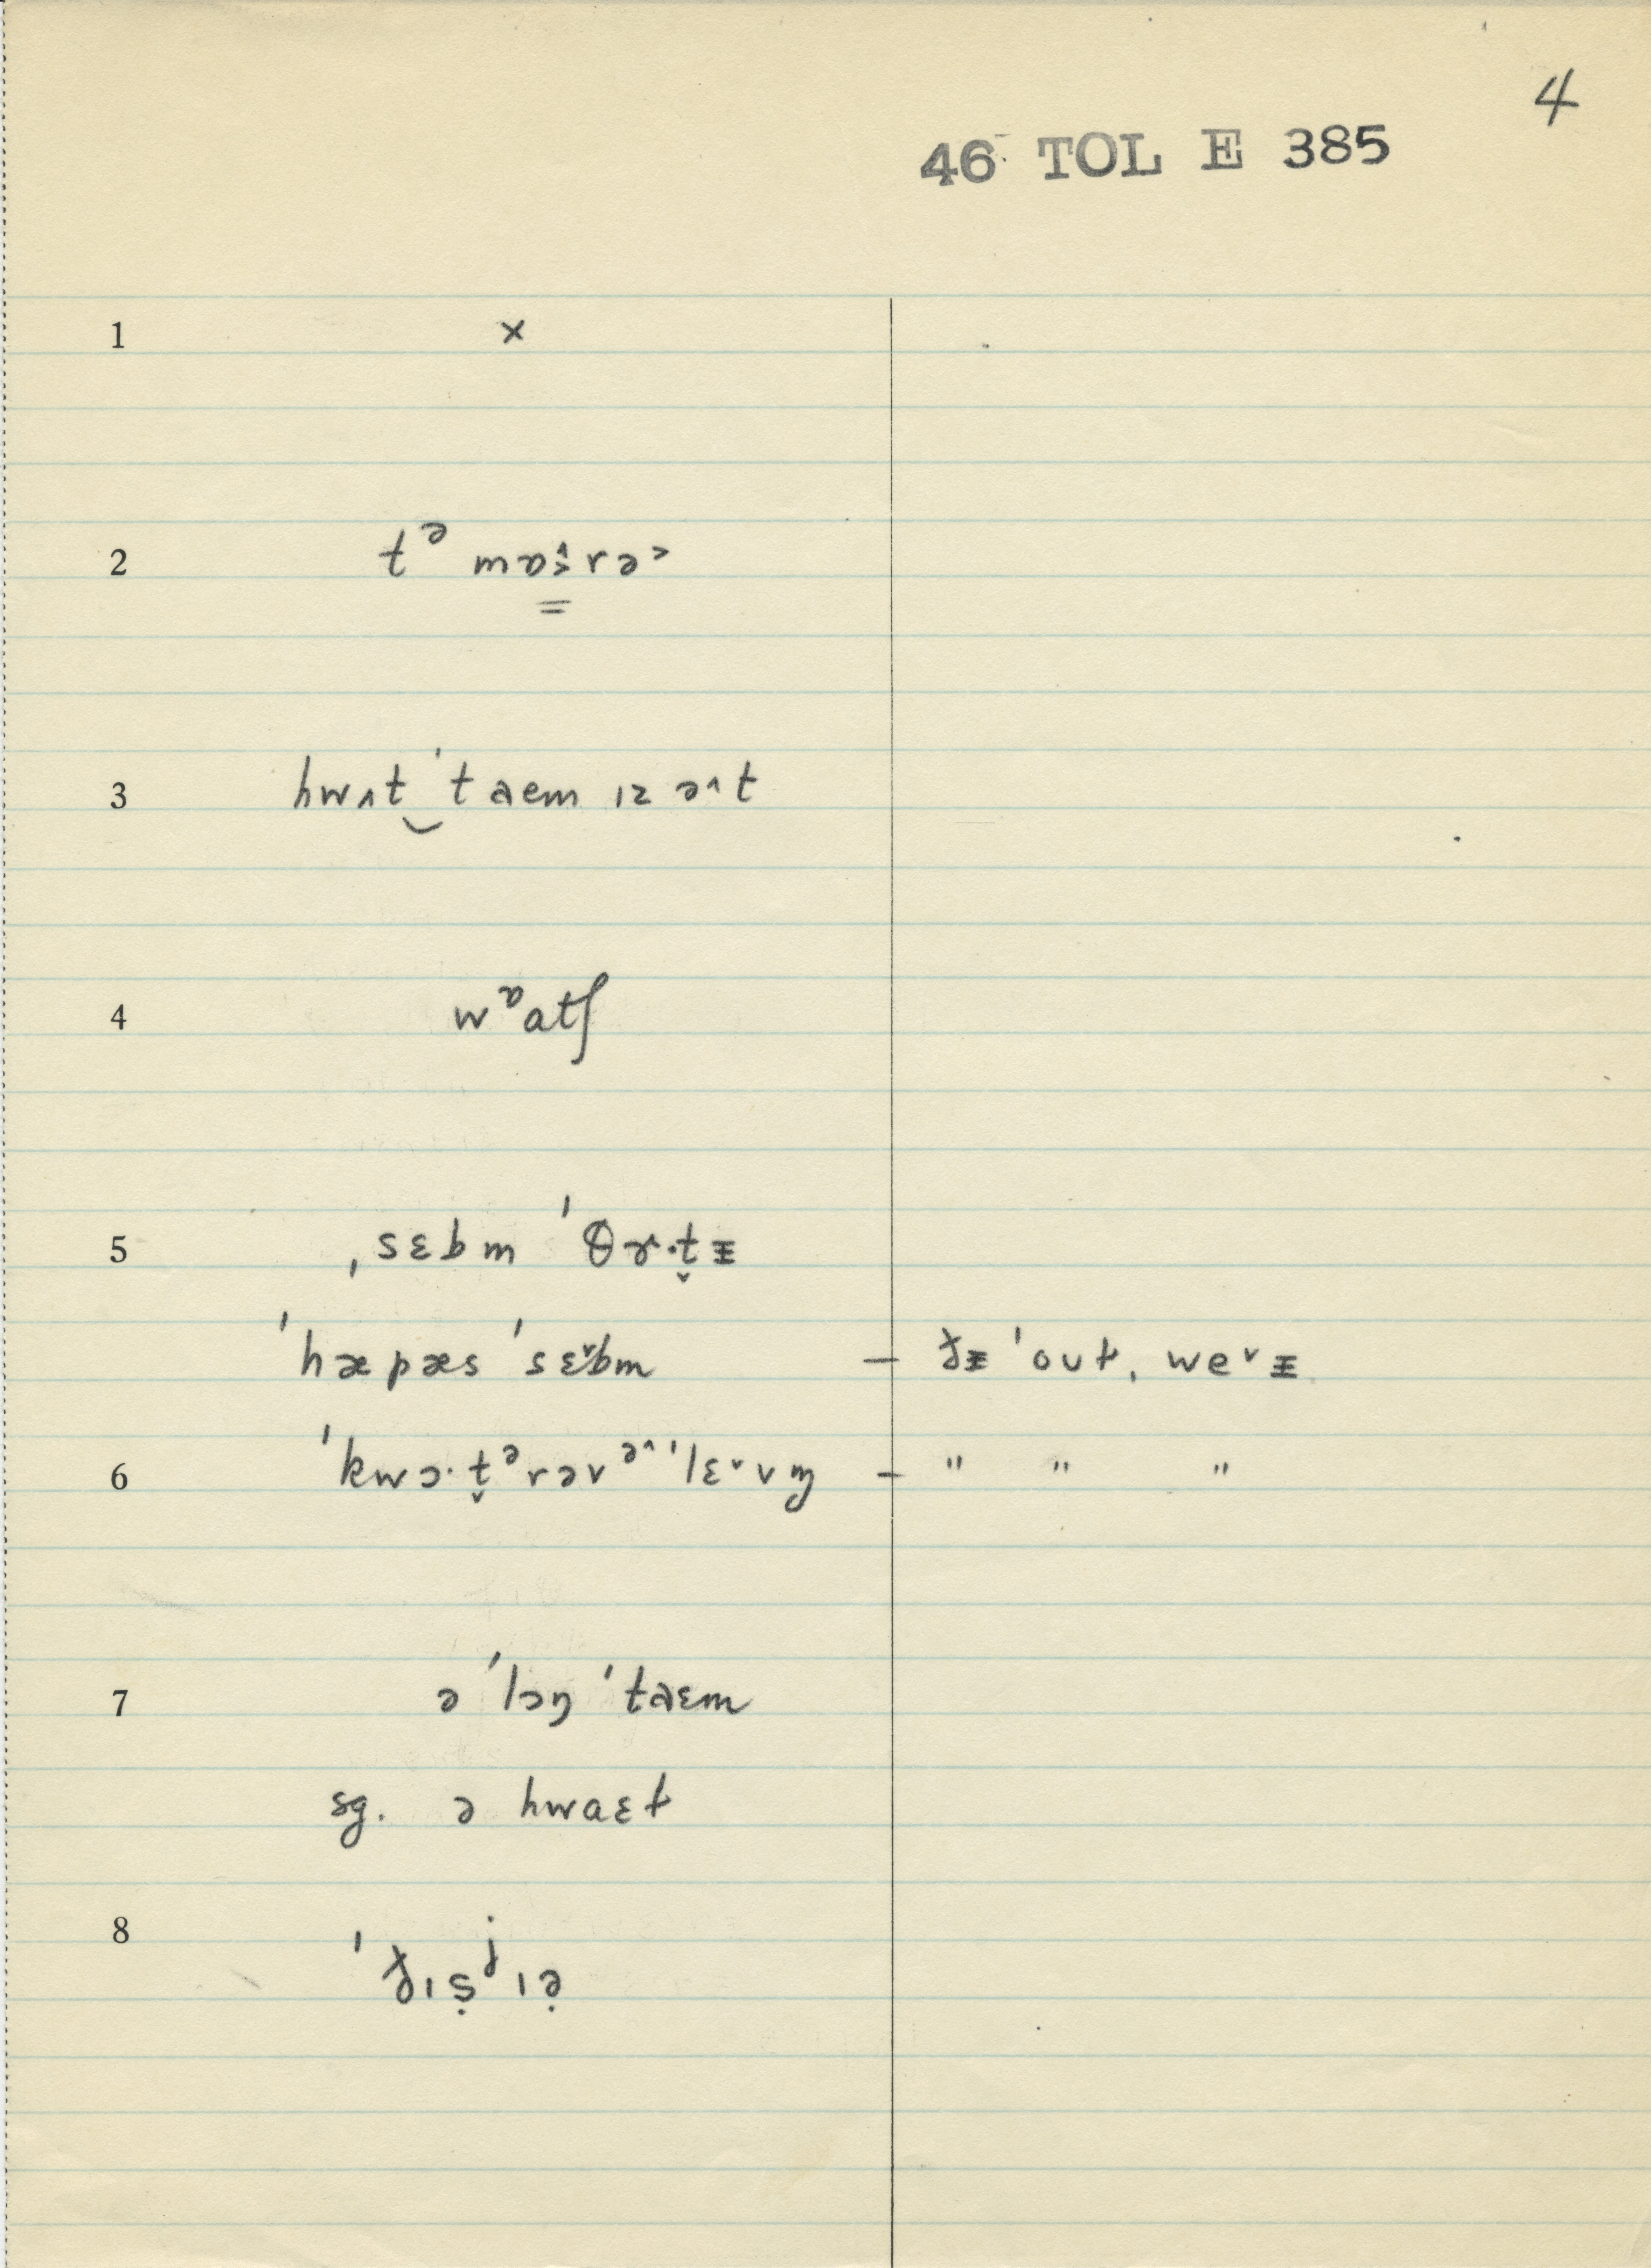 4
46 TOL E 385
1 ×
2 tᵊ mɒɨ̂rə˃
3 hwʌt‿ˈtaem ɪz əˆt
4 wᶛatʃ
5 ˌsɛbm ˈθɝ·t̬ᵻ
ˈhæpæs ˈsɛ˅bm – ðᵻ ˈout, we˅ᵻ
6 ˈkwɔ·t̬ᵊrəvᵊˆˈlɛ˅vm̩ – " " "
7 ə ˈlɔŋ ˈtaɛm
sg. ə hwaɛt
8 ˈðɪṣʲɪə̣